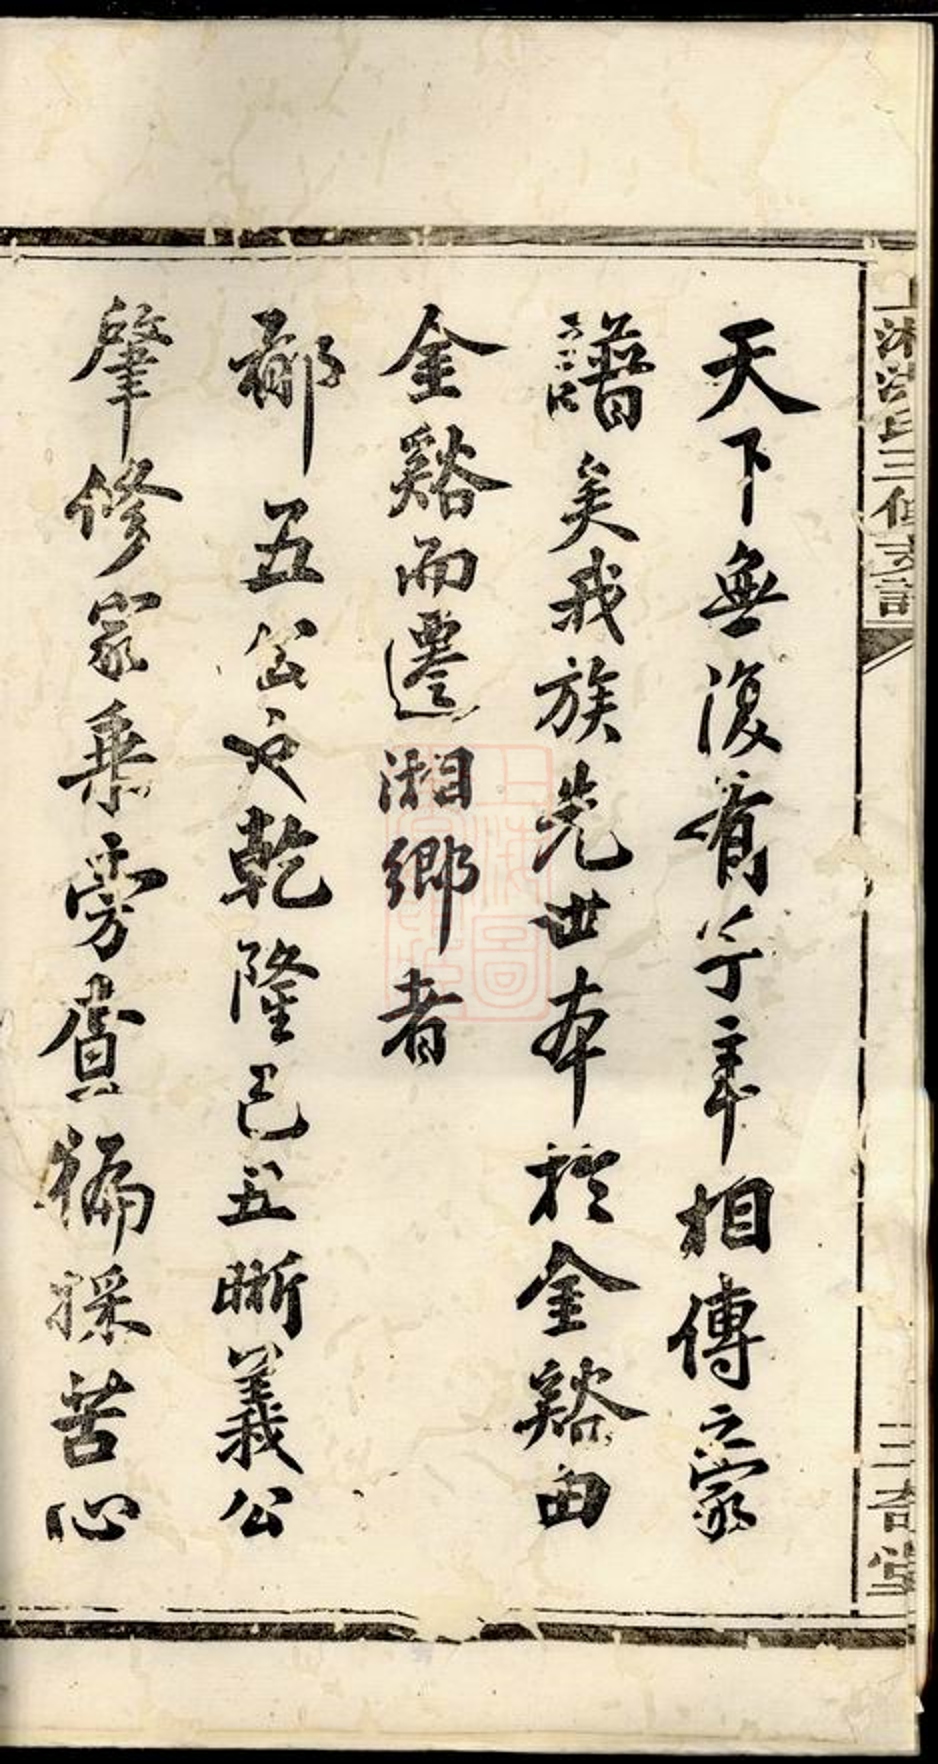 上湘洪氏三修支譜
三吉堂
天下無復有千年相傳之家
譜矣我族先世本於金谿由
金谿而遷湘鄉者
郁五公也乾隆己丑晰義公
肇修家乘旁賨徧採苦心